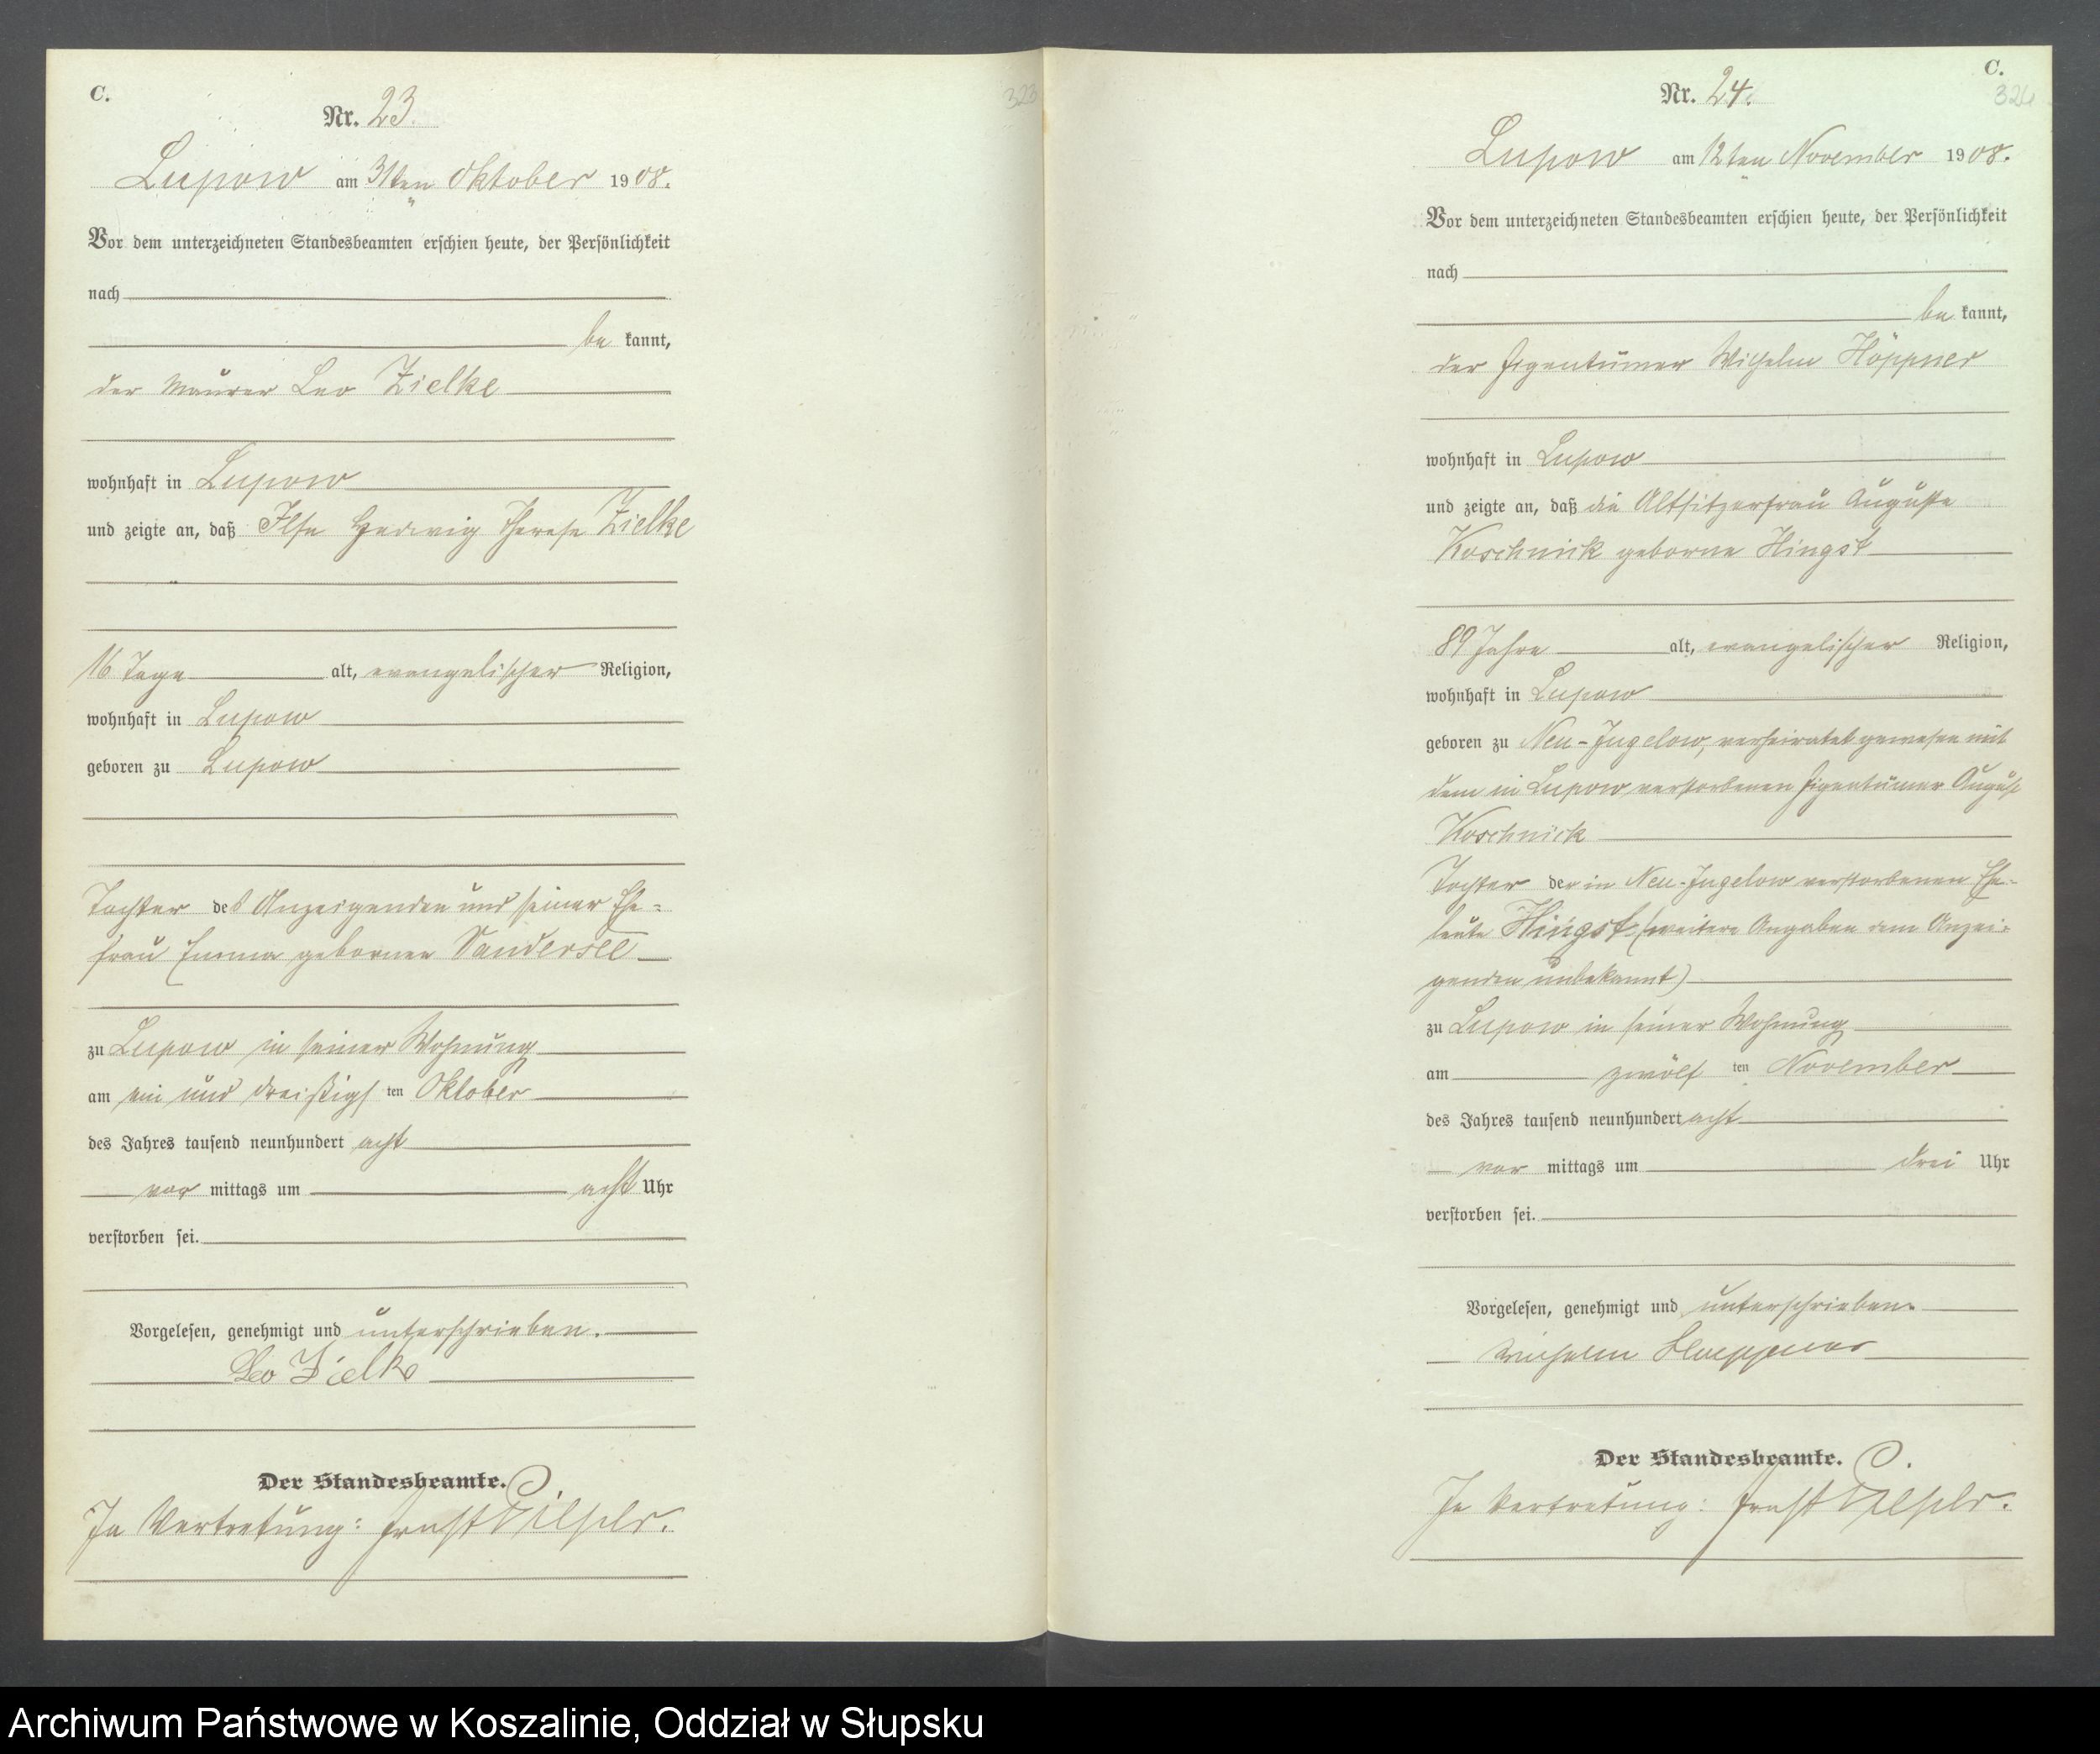 C.
323
Nr. 23.
Lupow am 31ten Oktober 1908.
Vor dem unterzeichneten Standesbeamten erschien heute, der Persönlichkeit
nach
be kannt,
der Maurer Leo Zielke
wohnhaft in Lupow
und zeigte an, daß Ilse Hedwig Therese Zielke
16 Tage alt, evangelischer Religion,
wohnhaft in Lupow
geboren zu Lupow
Tochter des Anzeigenden und seiner Ehe=
frau Emma gebornen Sandersee
zu Lupow in seiner Wohnung
am ein und dreißigs ten Oktober
des Jahres tausend neunhundert acht
vor mittags um acht Uhr
verstorben sei.
Vorgelesen, genehmigt und unterschrieben.
Leo Zielke
Der Standesbeamte.
In Vertretung: Ernst
C.
324
Nr. 24.
Lupow am 12ten November 1908.
Vor dem unterzeichneten Standesbeamten erschien heute, der Persönlichkeit
nach
be kannt,
der Eigentümer Wilhelm Höppner
wohnhaft in Lupow
und zeigte an, daß die Altsitzerfrau Auguste
Koschnick geborne Hingst
89 Jahre alt, evangelischer Religion,
wohnhaft in Lupow
geboren zu Neu-Jugelow, verheiratet gewesen mit
dem in Lupow verstorbenen Eigentümer August
Koschnick
Tochter der in Neu-Jugelow verstorbenen Ehe=
leute Hingst (weitere Angaben dem Anzei=
genden unbekannt)
zu Lupow in seiner Wohnung
am zwölf ten November
des Jahres tausend neunhundert acht
vor mittags um drei Uhr
verstorben sei.
Vorgelesen, genehmigt und unterschrieben.
Wilhelm Hoeppner
Der Standesbeamte.
In Vertretung: Ernst
Archiwum Państwowe w Koszalinie, Oddział w Słupsku